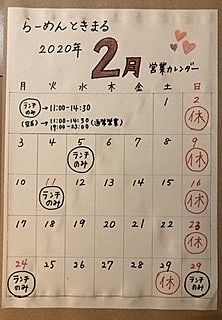 らーめんときまる
2020年 2月 営業カレンダー
月 火 水 木 金 土 日
ランチのみ → 11:00-14:30 1 2
→ 11:00-14:30 (通常営業) 休
19:00-23:00
3 4 5 6 7 8 9
ランチのみ 休
10 11 12 13 14 15 16
ランチのみ 休
17 18 19 20 21 22 23
休
24 25 26 27 28 29 29
ランチのみ 休 ランチのみ